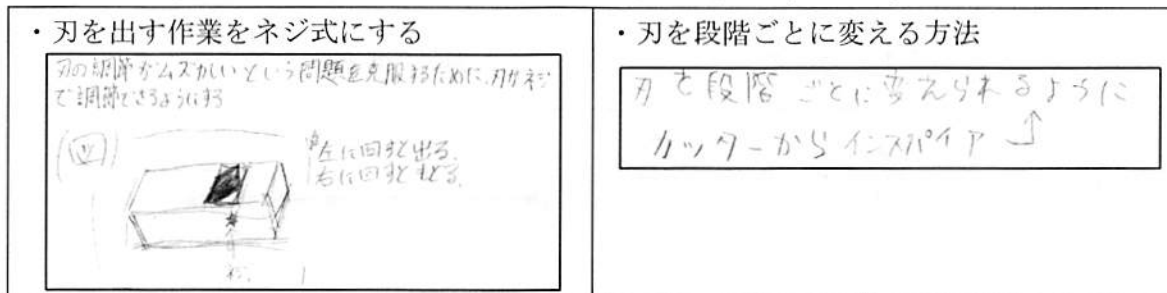 ・刃を出す作業をネジ式にする
刃の調節がムズかしいという問題を克服するために、刃がネジ
で調節できるようにする
(図)
左に回すと出る。
右に回すともどる。
ネジ
・刃を段階ごとに変える方法
刃を段階ごとに変えられるように
カッターからインスパイア